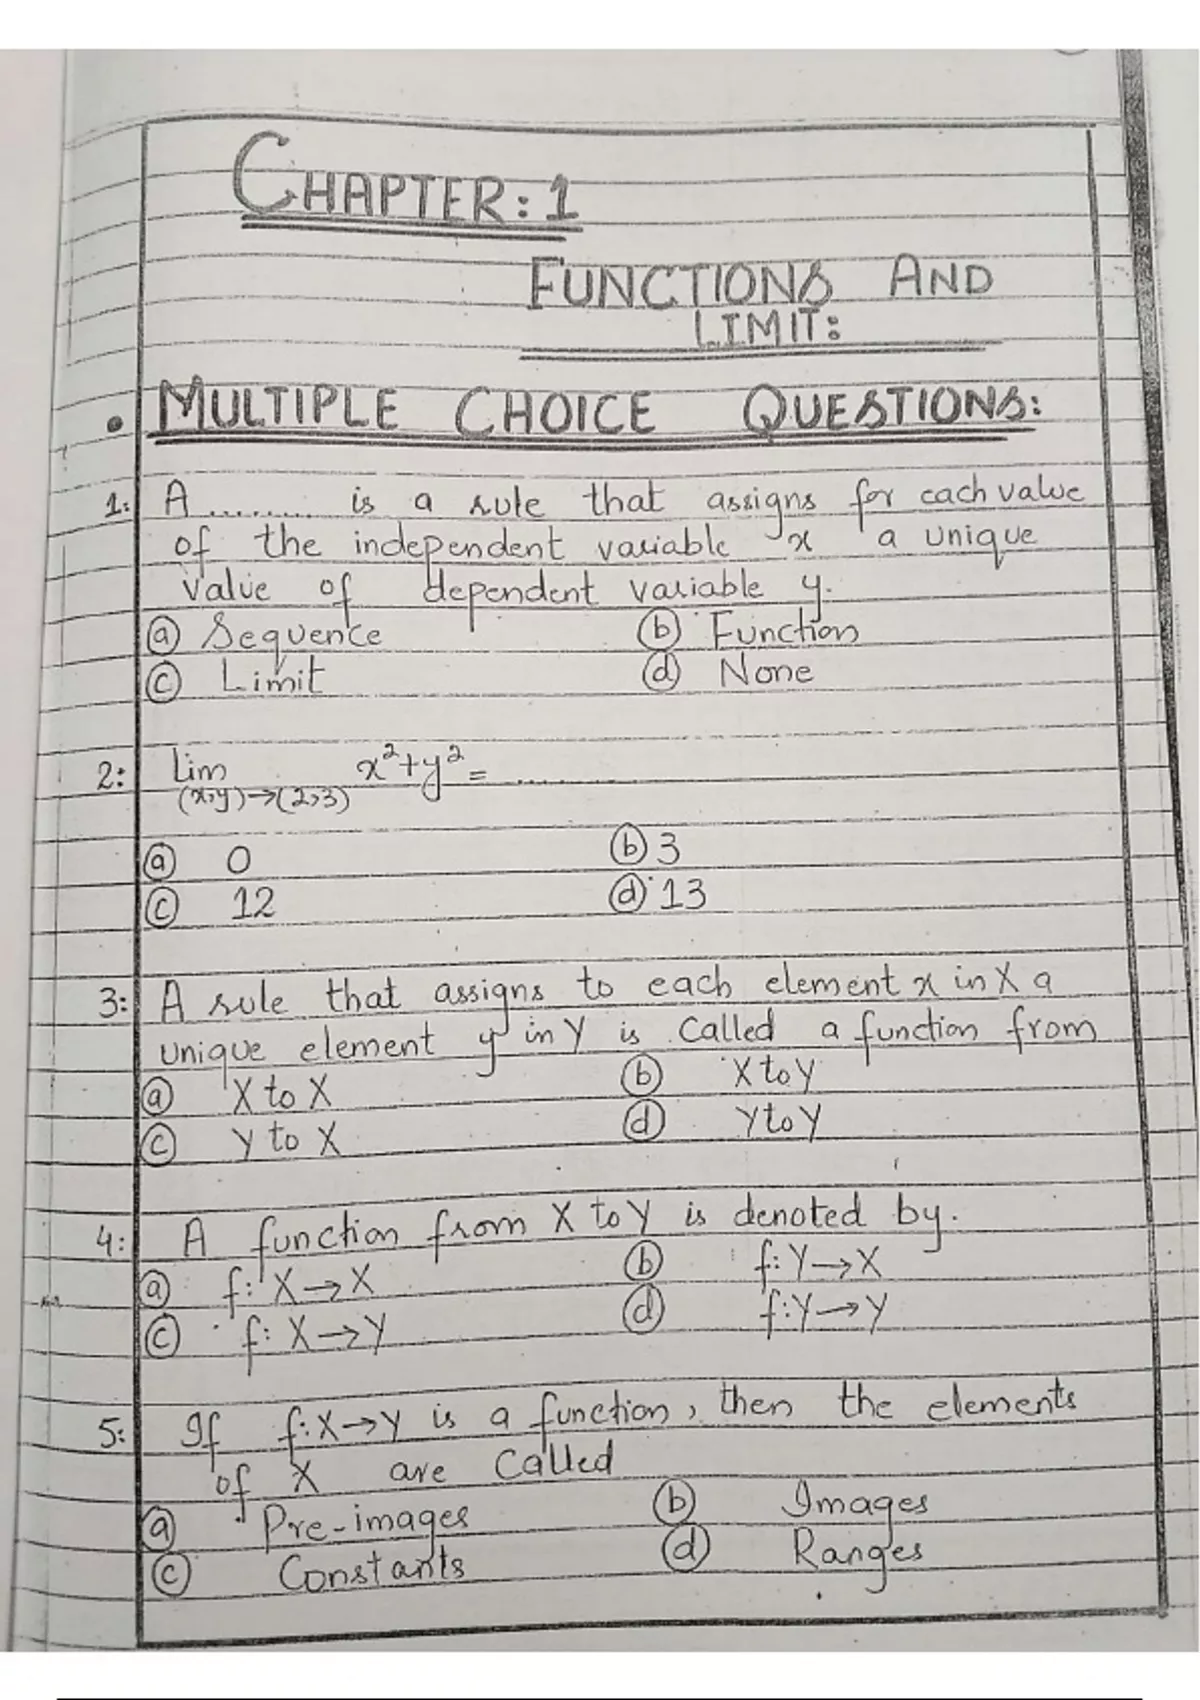 CHAPTER: 1
FUNCTIONS AND
LIMIT:
• MULTIPLE CHOICE QUESTIONS:
1: A ......... is a rule that assigns for each value
of the independent variable x a unique
value of dependent variable y.
ⓐ Sequence ⓑ Function
ⓒ Limit ⓓ None
2: Lim x²+y² = ........
(x,y)→(2,3)
ⓐ 0 ⓑ 3
ⓒ 12 ⓓ 13
3: A rule that assigns to each element x in X a
unique element y in Y is called a function from
ⓐ X to X ⓑ X to Y
ⓒ Y to X ⓓ Y to Y
4: A function from X to Y is denoted by.
ⓐ f: X→X ⓑ f: Y→X
ⓒ f: X→Y ⓓ f: Y→Y
5: If f: X→Y is a function, then the elements
of X are called
ⓐ Pre-images ⓑ Images
ⓒ Constants ⓓ Ranges